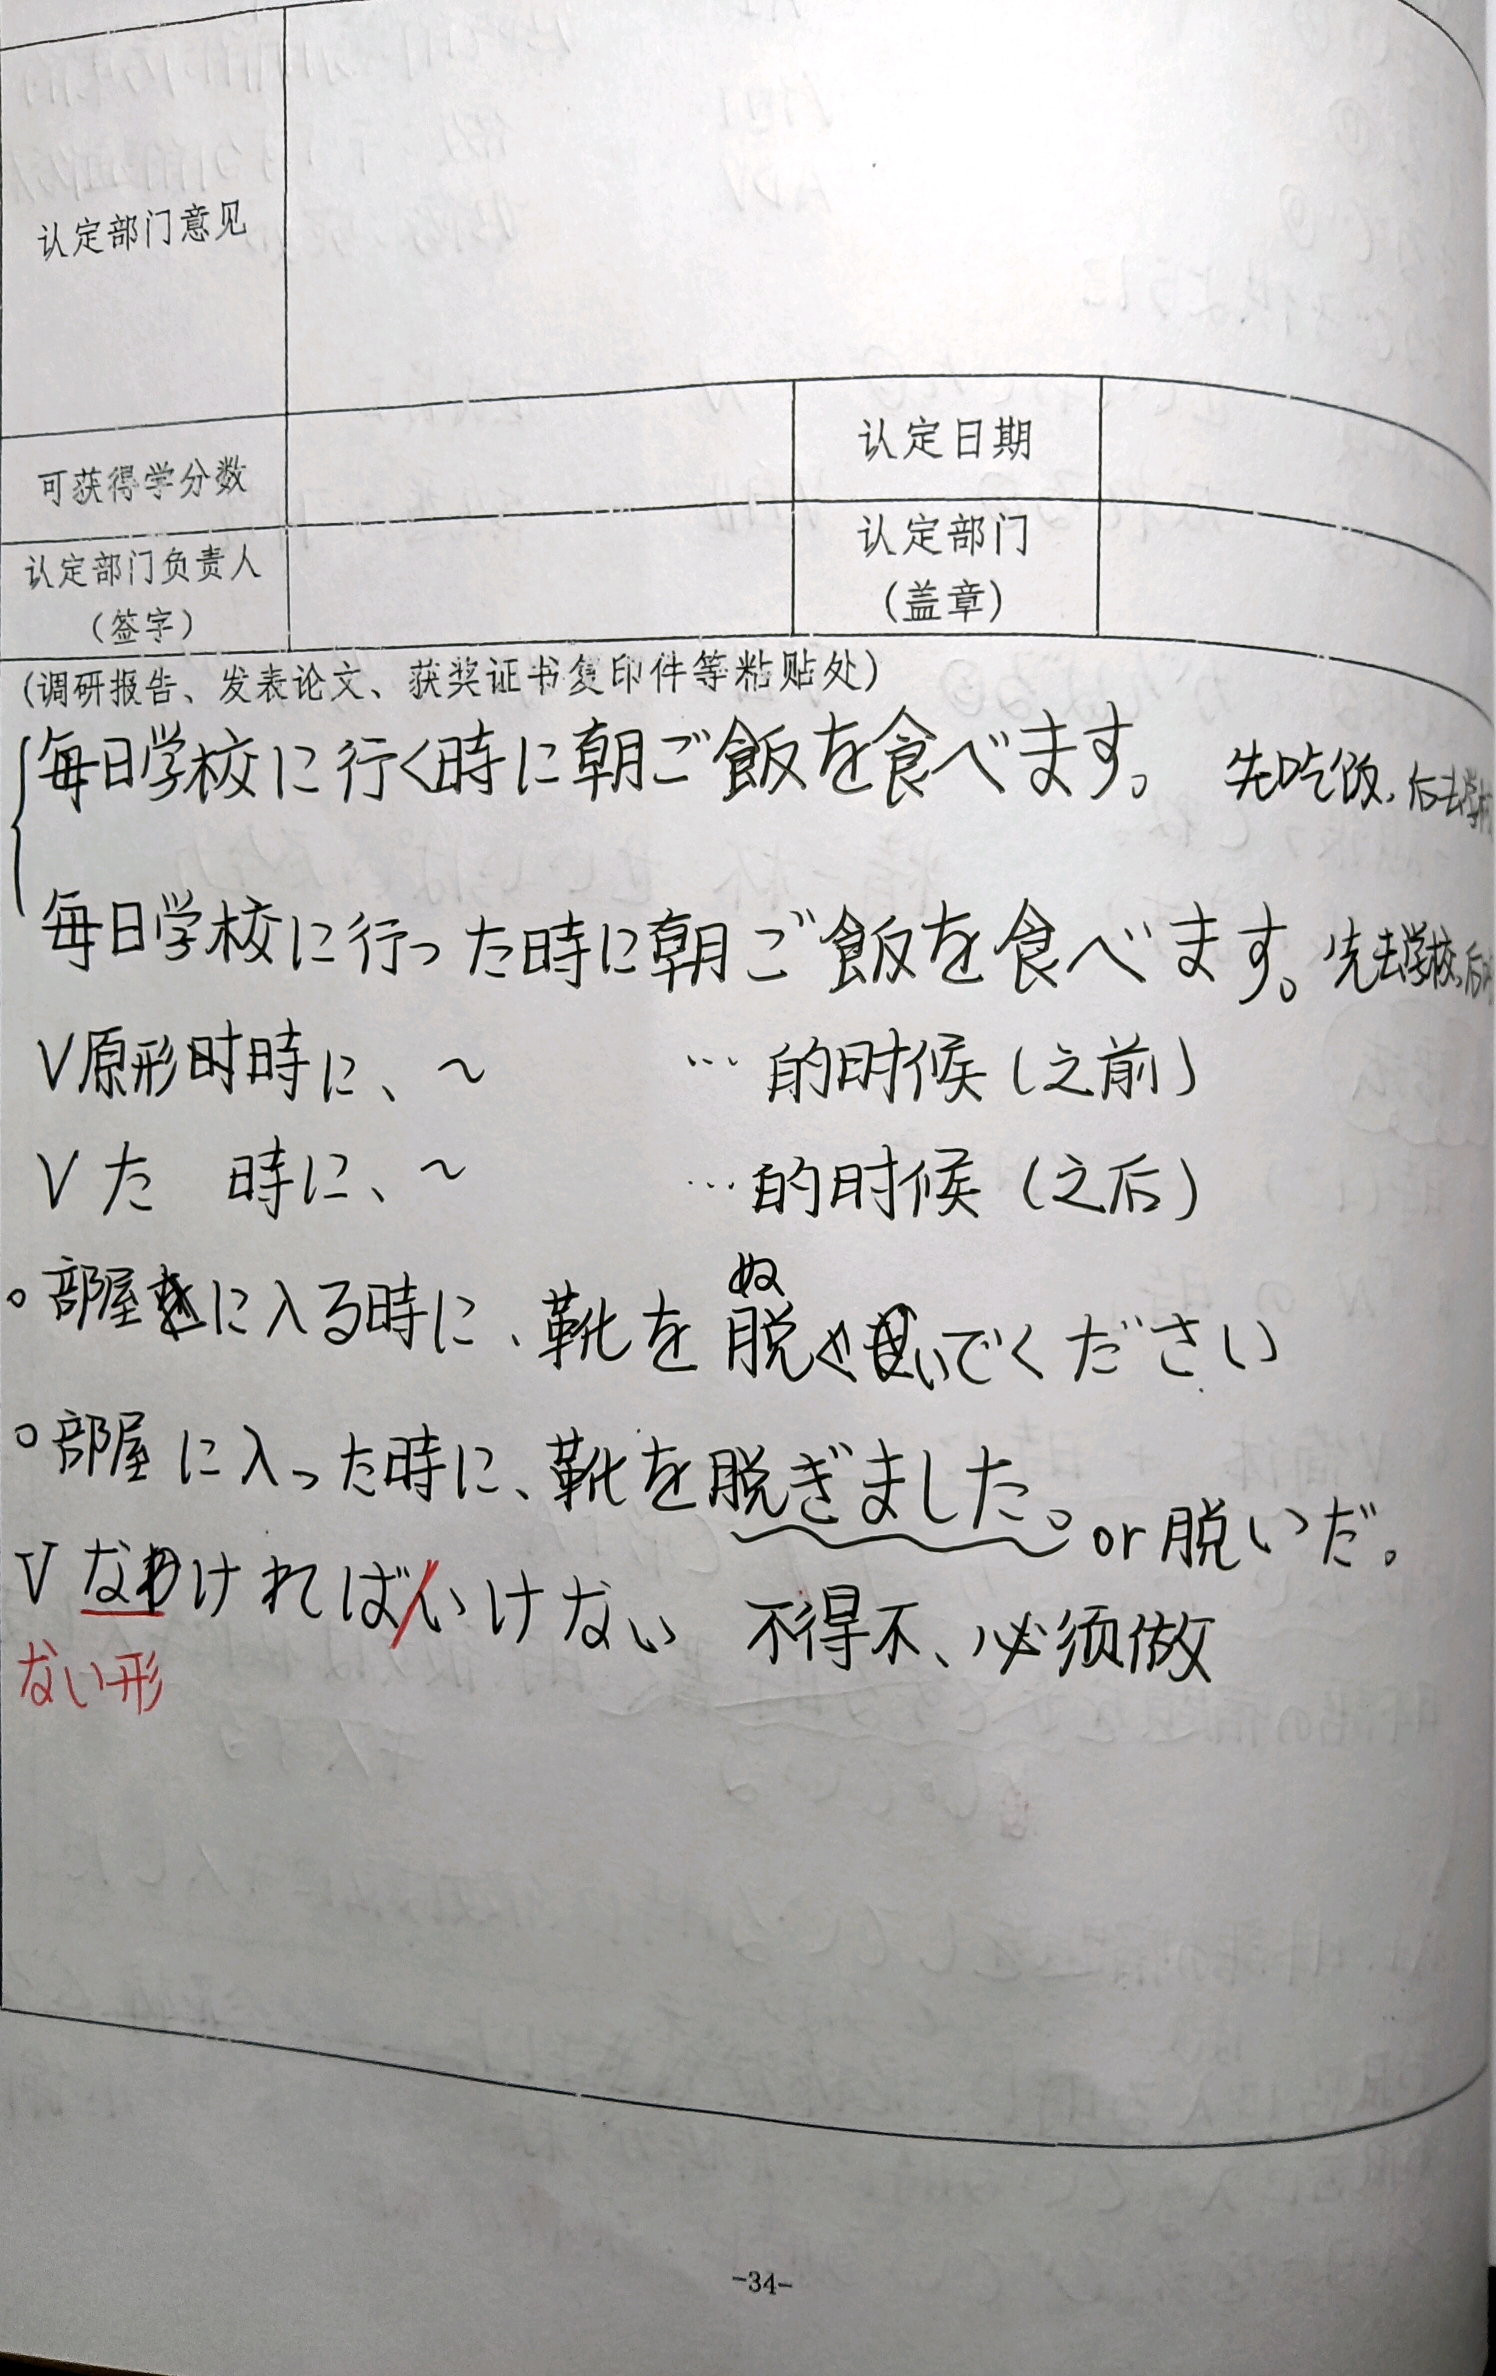 认定部门意见
可获得学分数
认定日期
认定部门负责人
（签字）
认定部门
（盖章）
(调研报告、发表论文、获奖证书复印件等粘贴处)
毎日学校に行く時に朝ご飯を食べます。 先吃饭，后去学校
毎日学校に行った時に朝ご飯を食べます。先去学校，后
V原形时時に、～ …的时候（之前）
Vた 時に、～ …的时候（之后）
。部屋に入る時に、靴を脱いでください
ぬ
。部屋に入った時に、靴を脱ぎました。or 脱いだ。
V なければ/いけない 不得不、必须做
ない形
-34-